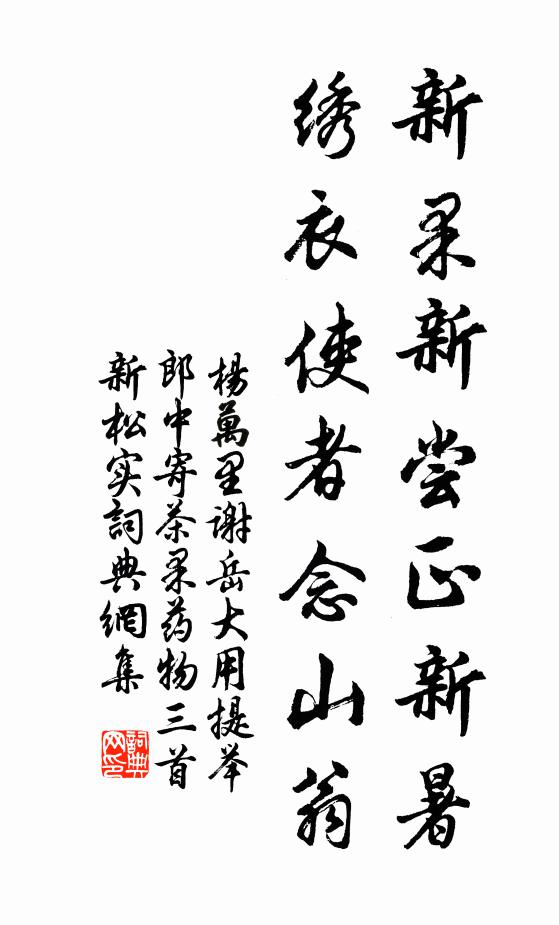 新果新尝正新暑
绣衣使者念山翁
楊萬里谢岳大用提举
郎中寄茶果药物三首
新松实詞典網集
詞典
网印